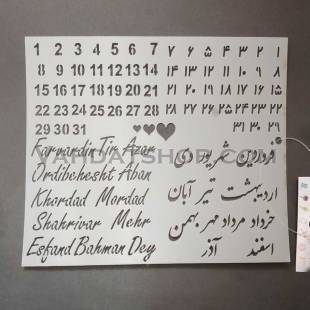 1 2 3 4 5 6 7 ۷ ۶ ۵ ۴ ۳ ۲ ۱
8 9 10 11 12 13 14 ۱۴ ۱۳ ۱۲ ۱۱ ۱۰ ۹ ۸
15 16 17 18 19 20 21 ۲۱ ۲۰ ۱۹ ۱۸ ۱۷ ۱۶ ۱۵
22 23 24 25 26 27 28 ۲۸ ۲۷ ۲۶ ۲۵ ۲۴ ۲۳ ۲۲
29 30 31 ۳۱ ۳۰ ۲۹
Farvardin Tir Azar
فروردین شهریور دی
VAHDATSHOP.COM
Ordibehesht Aban
اردیبهشت تیر آبان
Khordad Mordad
خرداد مرداد مهر بهمن
Shahrivar Mehr
اسفند آذر
Esfand Bahman Dey